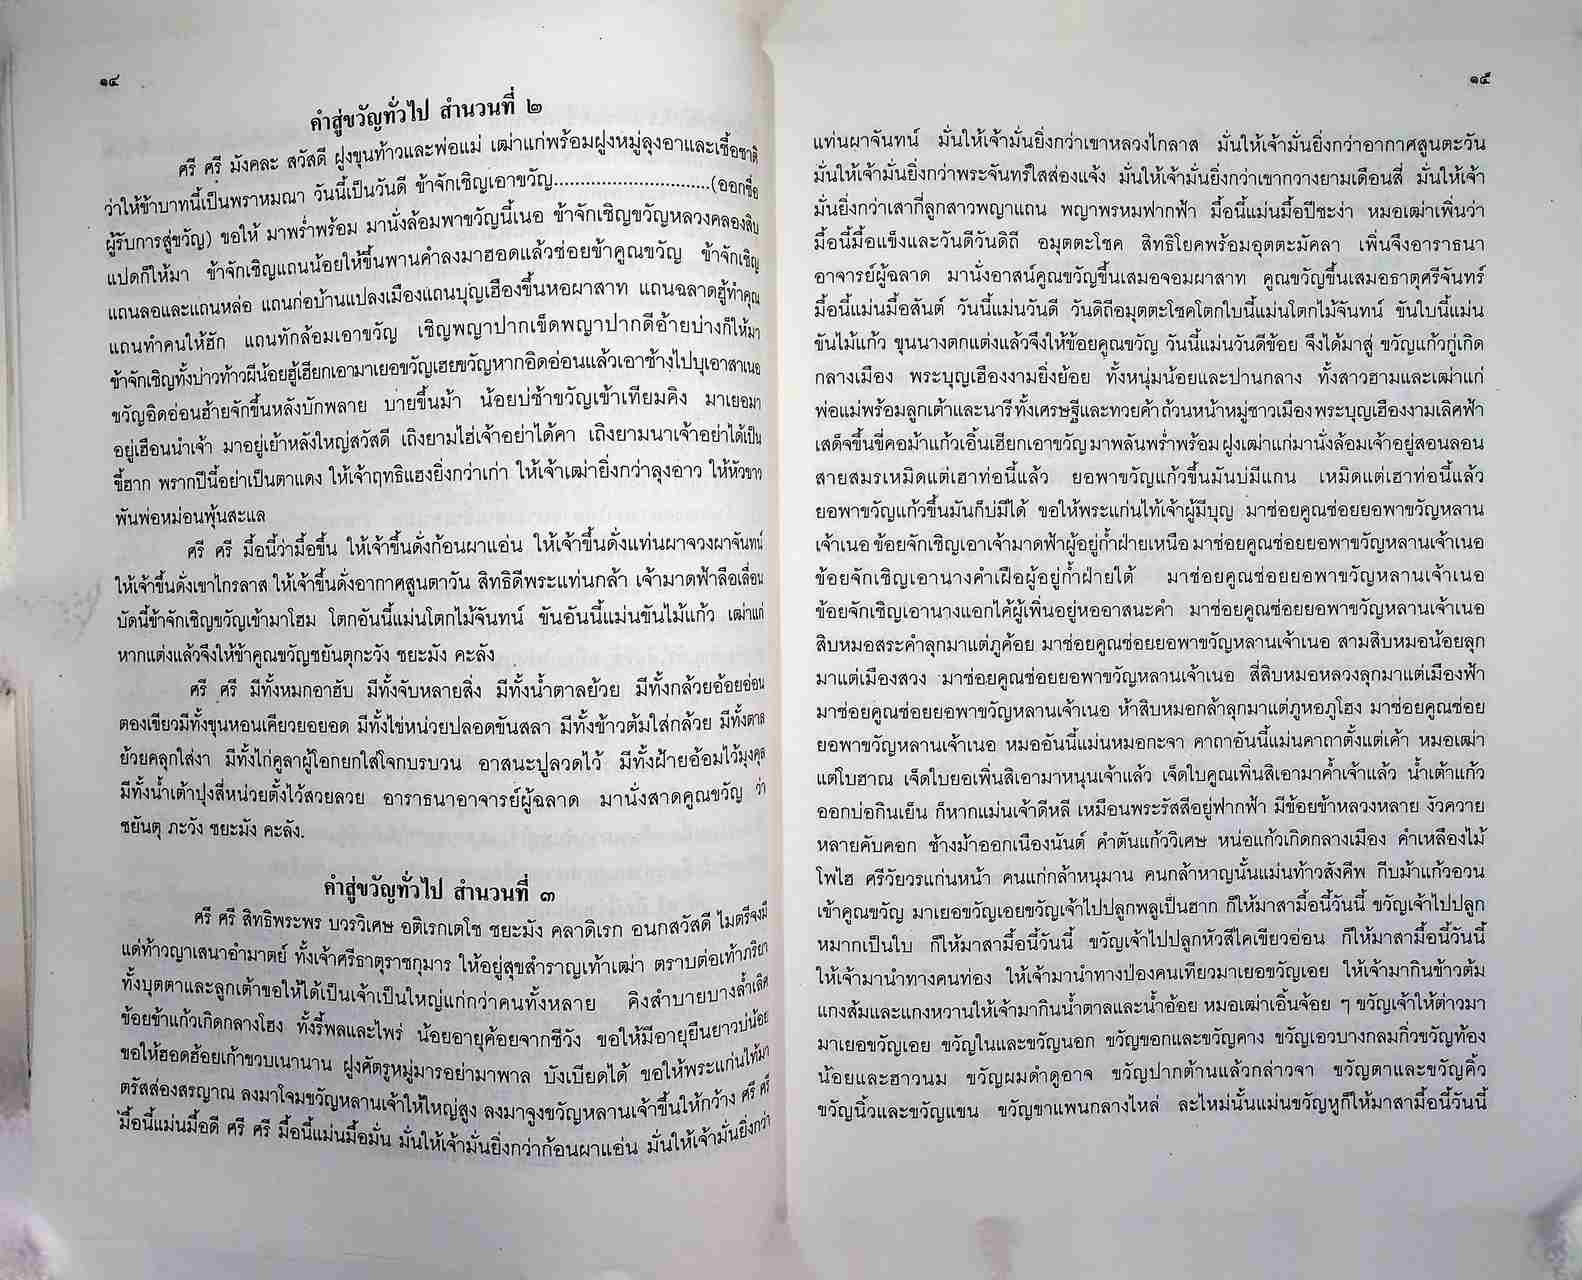 ๑๔
คำสู่ขวัญทั่วไป สำนวนที่ ๒
ศรี ศรี มังคละ สวัสดี ฝูงขุนท้าวและพ่อแม่ เฒ่าแก่พร้อมฝูงหมู่ลุงอาและเชื้อชาติ
ว่าให้ข้าบาทนี้เป็นพราหมณา วันนี้เป็นวันดี ข้าจักเชิญเอาขวัญ..............................(ออกชื่อ
ผู้รับการสู่ขวัญ) ขอให้ มาพร่ำพร้อม มานั่งล้อมพาขวัญนี้เนอ ข้าจักเชิญขวัญหลวงคลองสิบ
แปดก็ให้มา ข้าจักเชิญแถนน้อยให้ขึ้นพานคำลงมาฮอดแล้วซ่อยข้าคูณขวัญ ข้าจักเชิญ
แถนลอและแถนหล่อ แถนก่อบ้านแปลงเมืองแถนบุญเฮืองขึ้นหอผาสาท แถนฉลาดฮู้ทำคุณ
แถนทำคนให้ฮัก แถนทักล้อมเอาขวัญ เชิญพญาปากเข็ดพญาปากดีอ้ายบ่างก็ให้มา
ข้าจักเชิญทั้งบ่าวท้าวผีน้อยฮู้เฮียกเอามาเยอขวัญเฮยขวัญหากอิดอ่อนแล้วเอาช้างไปบุเอาสาเนอ
ขวัญอิดอ่อนฮ้ายจักขึ้นหลังบักพลาย บ่ายขึ้นม้า น้อยบ่ช้าขวัญเข้าเทียมคิง มาเยอมา
อยู่เฮือนนำเจ้า มาอยู่เย้าหลังใหญ่สวัสดี เถิงยามไฮ่เจ้าอย่าได้คา เถิงยามนาเจ้าอย่าได้เป็น
ขี้ฮาก พรากปีนี้อย่าเป็นตาแดง ให้เจ้าฤทธิแฮงยิ่งกว่าเก่า ให้เจ้าเฒ่ายิ่งกว่าลุงอาว ให้หัวขาว
พันพ่อหม่อนพุ้นสะแล
ศรี ศรี มื้อนี้ว่ามื้อขึ้น ให้เจ้าขึ้นดั่งก้อนผาแอ่น ให้เจ้าขึ้นดั่งแท่นผาจวงผาจันทน์
ให้เจ้าขึ้นดั่งเขาไกรลาส ให้เจ้าขึ้นดั่งอากาศสูนตาวัน สิทธิดีพระแท่นกล้า เจ้ามาดฟ้าลือเลื่อน
บัดนี้ข้าจักเชิญขวัญเข้ามาโฮม โตกอันนี้แม่นโตกไม้จันทน์ ขันอันนี้แม่นขันไม้แก้ว เฒ่าแก่
หากแต่งแล้วจึงให้ข้าคูณขวัญชยันตุกะวัง ชยะมัง คะลัง
ศรี ศรี มีทั้งหมกอาฮับ มีทั้งจับหลายสิ่ง มีทั้งน้ำตาลย้วย มีทั้งกล้วยอ้อยอ่อน
ตองเขียวมีทั้งขุนหอนเคียวยอยอด มีทั้งไข่หน่วยปลอดขันสลา มีทั้งข้าวต้มใส่กล้วย มีทั้งตาล
ย้วยคลุกใส่งา มีทั้งไก่คูลาผู้โอกยกใส่โจกบรบวน อาสนะปูลวดไว้ มีทั้งฝ้ายอ้อมไว้มุงคุล
มีทั้งน้ำเต้าปุงสี่หน่วยตั้งไว้สวยลวย อาราธนาอาจารย์ผู้ฉลาด มานั่งสาดคูณขวัญ ว่า
ชยันตุ ภะวัง ชยะมัง คะลัง.
คำสู่ขวัญทั่วไป สำนวนที่ ๓
ศรี ศรี สิทธิพระพร บวรวิเศษ อติเรกเตโช ชยะมัง คลาดิเรก อนกสวัสดี ไมตรีจงมี
แด่ท้าวญาเสนาอำมาตย์ ทั้งเจ้าศรีธาตุราชกุมาร ให้อยู่สุขสำราญเท้าเฒ่า ตราบต่อเท้าภริยา
ทั้งบุตตาและลูกเต้าขอให้ได้เป็นเจ้าเป็นใหญ่แก่กว่าคนทั้งหลาย คิงสำบายบางล้ำเลิศ
ข้อยข้าแก้วเกิดกลางโฮง ทั้งรี้พลและไพร่ น้อยอายุค้อยจากชีวัง ขอให้มีอายุยืนยาวบ่น้อย
ขอให้ฮอดฮ้อยเก้าขวบเนานาน ฝูงศัตรูหมู่มารอย่ามาพาล บังเบียดได้ ขอให้พระแก่นไท้มา
ตรัสส่องสรญาณ ลงมาโจมขวัญหลานเจ้าให้ใหญ่สูง ลงมาจูงขวัญหลานเจ้าขึ้นให้กว้าง ศรี ศรี
มื้อนี้แม่นมื้อดี ศรี ศรี มื้อนี้แม่นมื้อมั่น มั่นให้เจ้ามั่นยิ่งกว่าก้อนผาแอ่น มั่นให้เจ้ามั่นยิ่งกว่า
๑๕
แท่นผาจันทน์ มั่นให้เจ้ามั่นยิ่งกว่าเขาหลวงไกลาส มั่นให้เจ้ามั่นยิ่งกว่าอากาศสูนตะวัน
มั่นให้เจ้ามั่นยิ่งกว่าพระจันทร์ใสส่องแจ้ง มั่นให้เจ้ามั่นยิ่งกว่าเขากวางยามเดือนสี่ มั่นให้เจ้า
มั่นยิ่งกว่าเสากี่ลูกสาวพญาแถน พญาพรหมฟากฟ้า มื้อนี้แม่นมื้อปีชะง่า หมอเฒ่าเพิ่นว่า
มื้อนี้มื้อแข็งและวันดีวันดิถี อมุตตะโชค สิทธิโยคพร้อมอุตตะมัคลา เพิ่นจึงอาราธนา
อาจารย์ผู้ฉลาด มานั่งอาสน์คูณขวัญขึ้นเสมอจอมผาสาท คูณขวัญขึ้นเสมอธาตุศรีจันทร์
มื้อนี้แม่นมื้อสันต์ วันนี้แม่นวันดี วันดิถีอมุตตะโชคโตกใบนี้แม่นโตกไม้จันทน์ ขันใบนี้แม่น
ขันไม้แก้ว ขุนนางตกแต่งแล้วจึงให้ข้อยคูณขวัญ วันนี้แม่นวันดีข้อย จึงได้มาสู่ ขวัญแก้วกู่เกิด
กลางเมือง พระบุญเฮืองงามยิ่งย้อย ทั้งหนุ่มน้อยและปานกลาง ทั้งสาวฮามและเฒ่าแก่
พ่อแม่พร้อมลูกเต้าและนารีทั้งเศรษฐีและทวยค้าถ้วนหน้าหมู่ชาวเมืองพระบุญเฮืองงามเลิศฟ้า
เสด็จขึ้นขี่คอม้าแก้วเอิ้นเฮียกเอาขวัญมาพลันพร่ำพร้อมฝูงเฒ่าแก่มานั่งล้อมเจ้าอยู่สอนลอน
สายสมรเหมิดแต่เฮาท่อนี้แล้ว ยอพาขวัญแก้วขึ้นมันบ่มีแกน เหมิดแต่เฮาท่อนี้แล้ว
ยอพาขวัญแก้วขึ้นมันก็บ่มีได้ ขอให้พระแก่นไท้เจ้าผู้มีบุญ มาซ่อยคูณซ่อยยอพาขวัญหลาน
เจ้าเนอข้อยจักเชิญเอาเจ้ามาดฟ้าผู้อยู่ก้ำฝ่ายเหนือมาซ่อยคูณซ่อยยอพาขวัญหลานเจ้าเนอ
ข้อยจักเชิญเอานางคำเฝือผู้อยู่ก้ำฝ่ายใต้ มาซ่อยคูณซ่อยยอพาขวัญหลานเจ้าเนอ
ข้อยจักเชิญเอานางแอกไค้ผู้เพิ่นอยู่หออาสนะคำ มาซ่อยคูณซ่อยยอพาขวัญหลานเจ้าเนอ
สิบหมอสระคำลุกมาแต่ภูค้อย มาซ่อยคูณซ่อยยอพาขวัญหลานเจ้าเนอ สามสิบหมอน้อยลุก
มาแต่เมืองสวง มาซ่อยคูณซ่อยยอพาขวัญหลานเจ้าเนอ สี่สิบหมอหลวงลุกมาแต่เมืองฟ้า
มาซ่อยคูณซ่อยยอพาขวัญหลานเจ้าเนอ ห้าสิบหมอกล้าลุกมาแต่ภูหอภูโฮง มาซ่อยคูณซ่อย
ยอพาขวัญหลานเจ้าเนอ หมออันนี้แม่นหมอกะจา คาถาอันนี้แม่นคาถาตั้งแต่เค้า หมอเฒ่า
แต่โบฮาณ เจ็ดใบยอเพิ่นสิเอามาหนุนเจ้าแล้ว เจ็ดใบคูณเพิ่นสิเอามาค้ำเจ้าแล้ว น้ำเต้าแก้ว
ออกบ่อกินเย็น ก็หากแม่นเจ้าดีหลี เหมือนพระรัสสีอยู่ฟากฟ้า มีข้อยข้าหลวงหลาย งัวควาย
หลายคับคอก ช้างม้าออกเนืองนันต์ คำตันแก้ววิเศษ หน่อแก้วเกิดกลางเมือง คำเหลืองไม้
โพไฮ ศรีวัยวรแก่นหน้า คนแก่กล้าหนุมาน คนกล้าหาญนั้นแม่นท้าวสังคีพ กีบม้าแก้วอวน
เข้าคูณขวัญ มาเยอขวัญเอยขวัญเจ้าไปปลูกพลูเป็นฮาก ก็ให้มาสามื้อนี้วันนี้ ขวัญเจ้าไปปลูก
หมากเป็นใบ ก็ให้มาสามื้อนี้วันนี้ ขวัญเจ้าไปปลูกหัวสีไคเขียวอ่อน ก็ให้มาสามื้อนี้วันนี้
ให้เจ้ามานำทางคนท่อง ให้เจ้ามานำทางป่องคนเทียวมาเยอขวัญเอย ให้เจ้ามากินข้าวต้ม
แกงส้มและแกงหวานให้เจ้ามากินน้ำตาลและน้ำอ้อย หมอเฒ่าเอิ้นจ้อย ๆ ขวัญเจ้าให้ต่าวมา
มาเยอขวัญเอย ขวัญในและขวัญนอก ขวัญขอกและขวัญคาง ขวัญเอวบางกลมกิ่วขวัญท้อง
น้อยและฮาวนม ขวัญผมดำดูอาจ ขวัญปากต้านแล้วกล่าวจา ขวัญตาและขวัญคิ้ว
ขวัญนิ้วและขวัญแขน ขวัญขาแพนกลางไหล่ ละไหม่นั้นแม่นขวัญหูก็ให้มาสามื้อนี้วันนี้